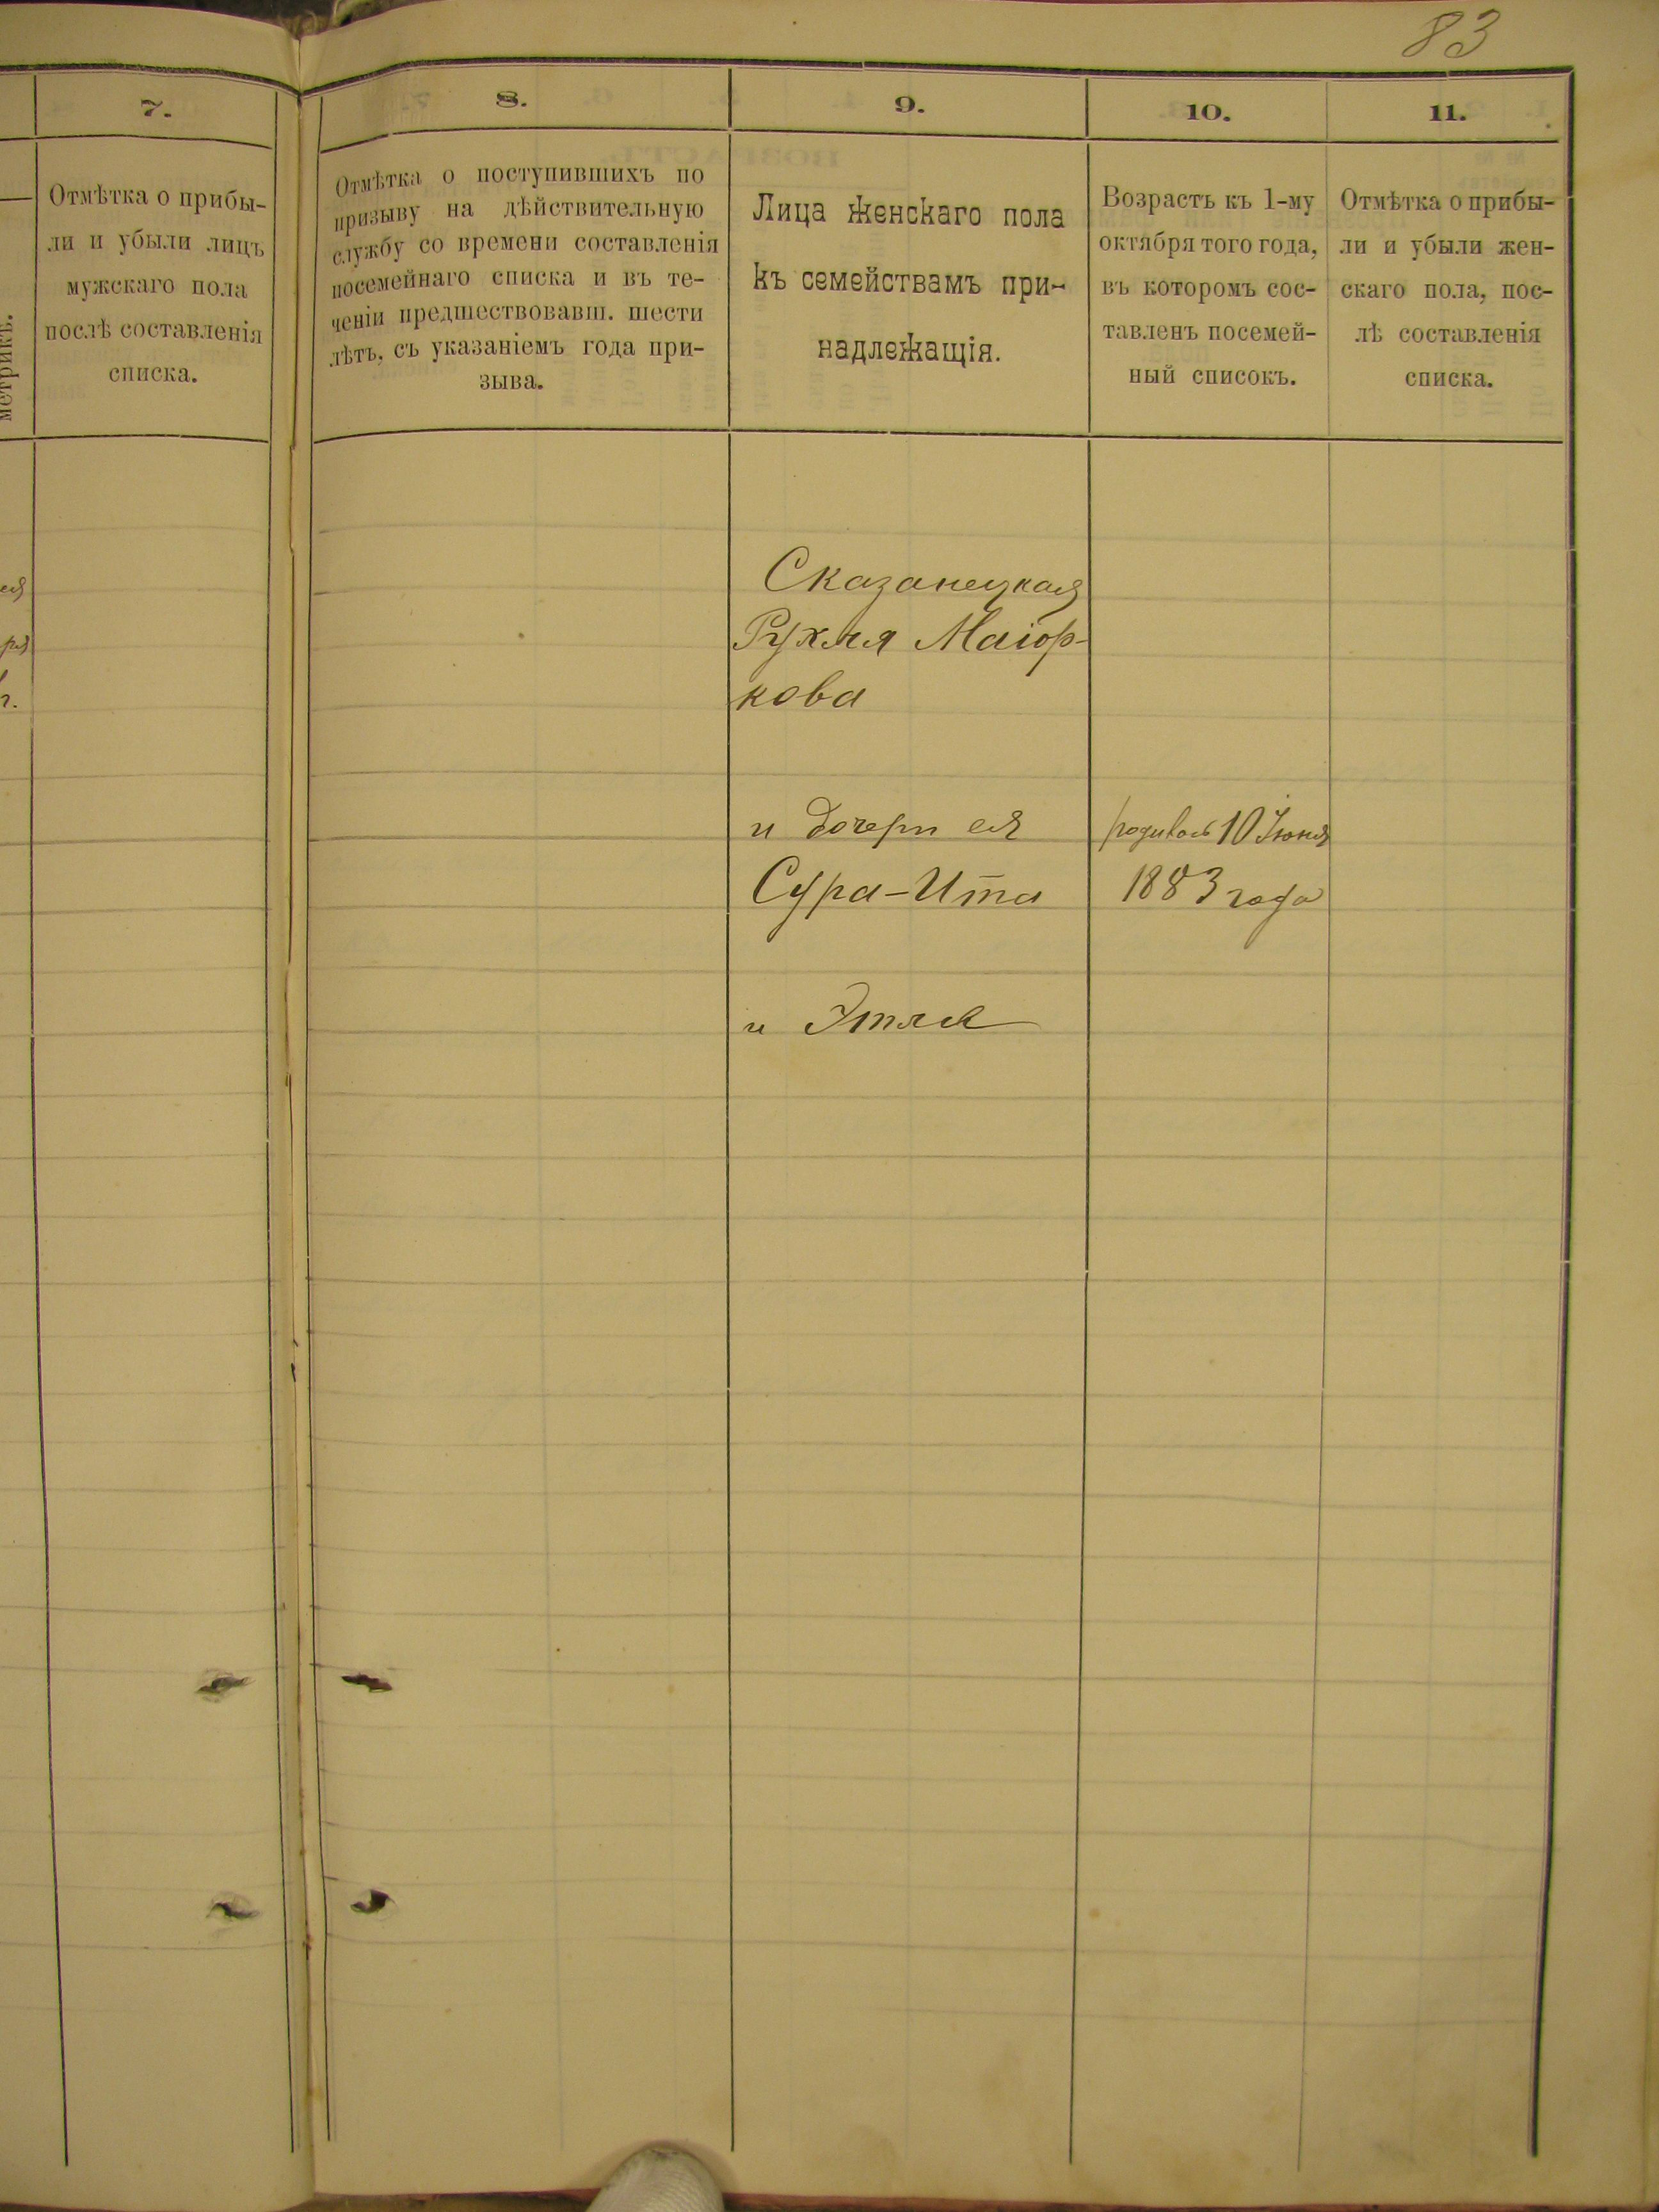 83
7.
Отмѣтка о прибы-
ли и убыли лицъ
мужскаго пола
послѣ составленія
списка.
метрикъ.
8.
Отмѣтка о поступившихъ по
призыву на дѣйствительную
службу со времени составленія
посемейнаго списка и въ те-
ченіи предшествовавш. шести
лѣтъ, съ указаніемъ года при-
зыва.
9.
Лица женскаго пола
къ семействамъ при-
надлежащія.
10.
Возрастъ къ 1-му
октября того года,
въ которомъ сос-
тавленъ посемей-
ный списокъ.
11.
Отмѣтка о прибы-
ли и убыли жен-
скаго пола, пос-
лѣ составленія
списка.
Сказанецкая
Рухля Маіор-
кова
и дочери ея
родилась 10 Іюня
Сура-Ита
1883 года
и Этля
г.